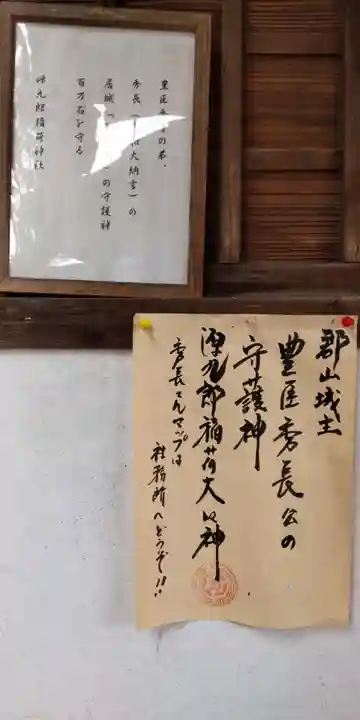 豊臣の弟、
秀長(大納言)の
居城「」の守護神
百万石を守る
源九郎稲荷神社
郡山城主
豊臣秀長公の
守護神
源九郎稲荷大明神
秀長さんマップは
社務所へどうぞ!!